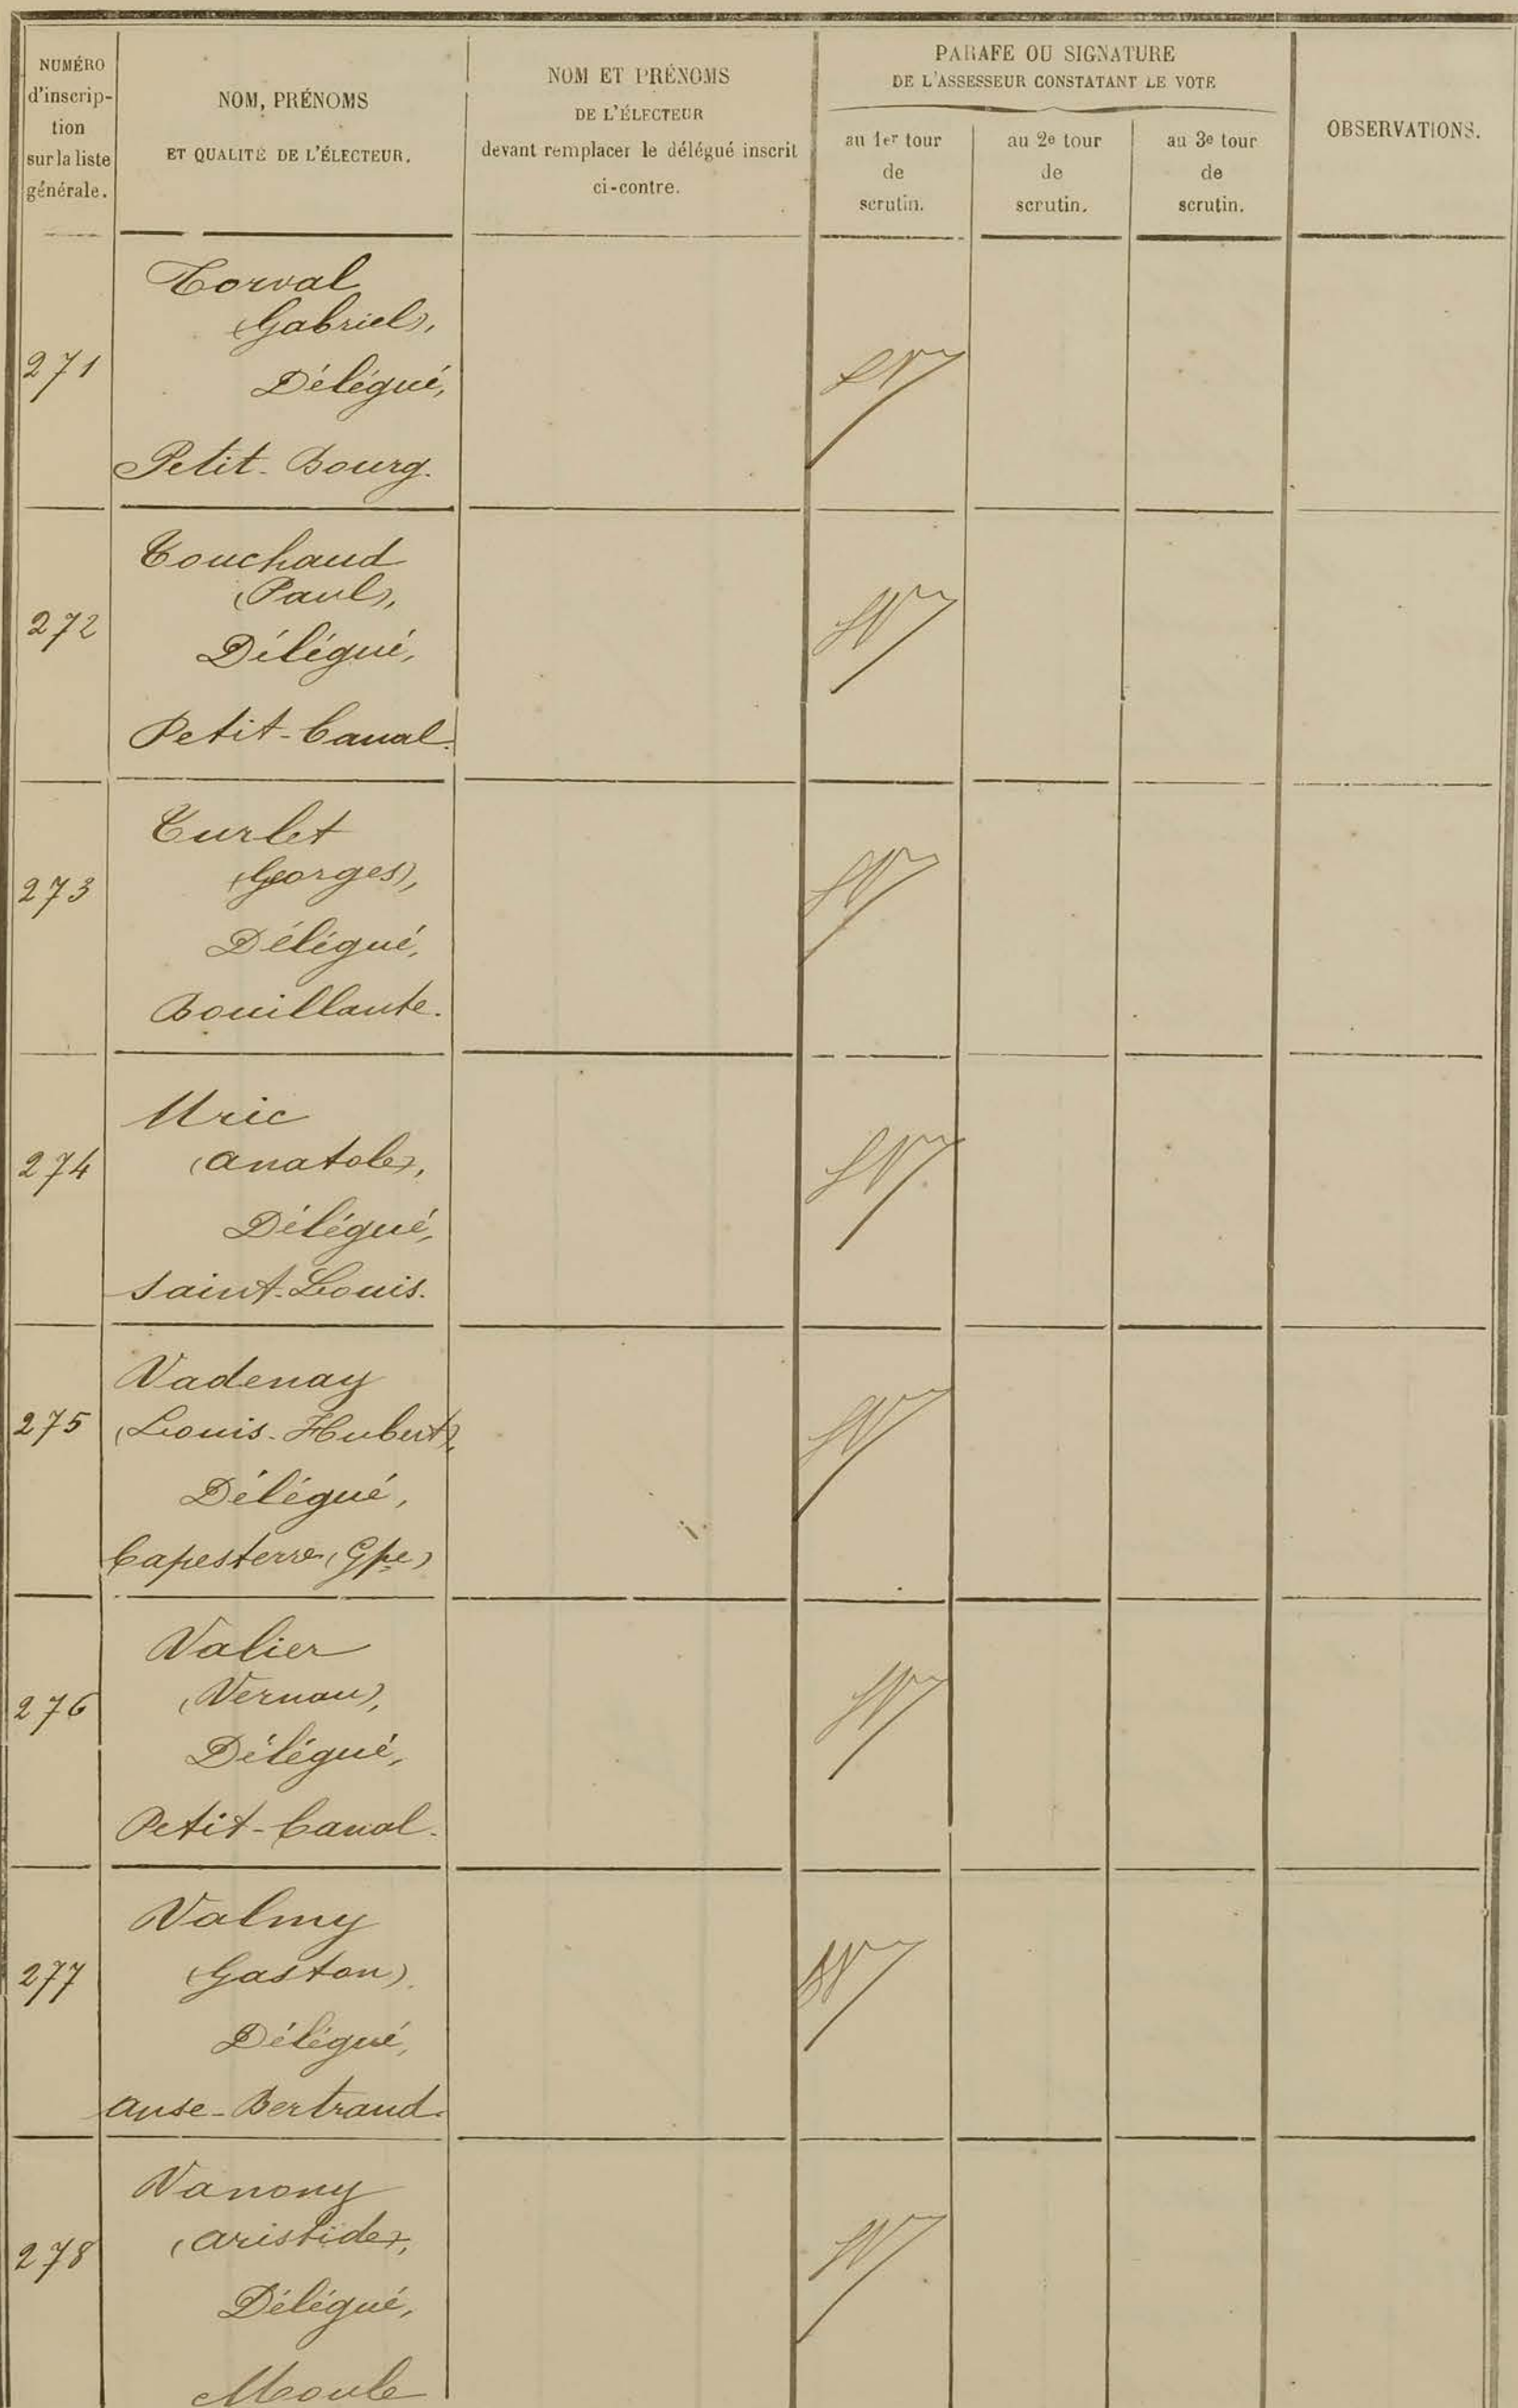 NUMÉRO
d'inscrip-
tion
sur la liste
générale.
NOM, PRÉNOMS
ET QUALITÉ DE L'ÉLECTEUR.
NOM ET PRÉNOMS
DE L'ÉLECTEUR
devant remplacer le délégué inscrit
ci-contre.
PARAFE OU SIGNATURE
DE L'ASSESSEUR CONSTATANT LE VOTE
au 1er tour
de
scrutin.
au 2e tour
de
scrutin.
au 3e tour
de
scrutin.
OBSERVATIONS.
271
Torval
(Gabriel),
Délégué,
Petit-Bourg.
272
Touchaud
(Paul),
Délégué,
Petit-Canal.
273
Turlet
(Georges),
Délégué,
Bouillante.
274
Uric
(Anatole),
Délégué,
Saint-Louis.
275
Vadenay
(Louis-Hubert),
Délégué,
Capesterre (Gpe)
276
Valier
(Vernau),
Délégué,
Petit-Canal.
277
Valmy
(Gaston).
Délégué,
Anse-Bertrand.
278
Vanony
(Aristide),
Délégué,
Moule